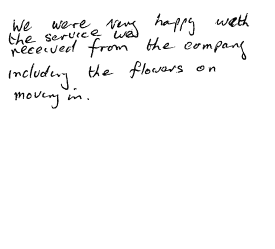 We were very happy with
the service we
received from the company
including the flowers on
moving in.